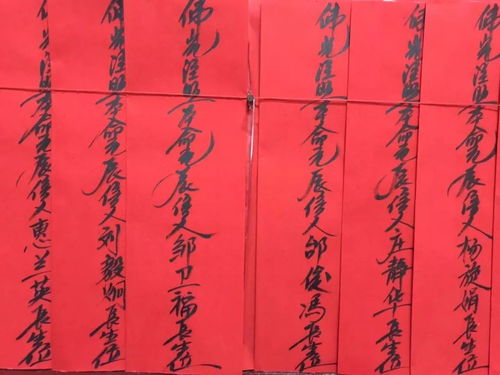 佛光注照本命元辰信人杨旋娟長生位
佛光注照本命元辰信人庄静华長生位
佛光注照本命元辰信人俊冯長生位
佛光注照本命元辰信人邹卫福長生位
佛光注照本命元辰信人刘毅炯長生位
佛光注照本命元辰信人惠兰英長生位